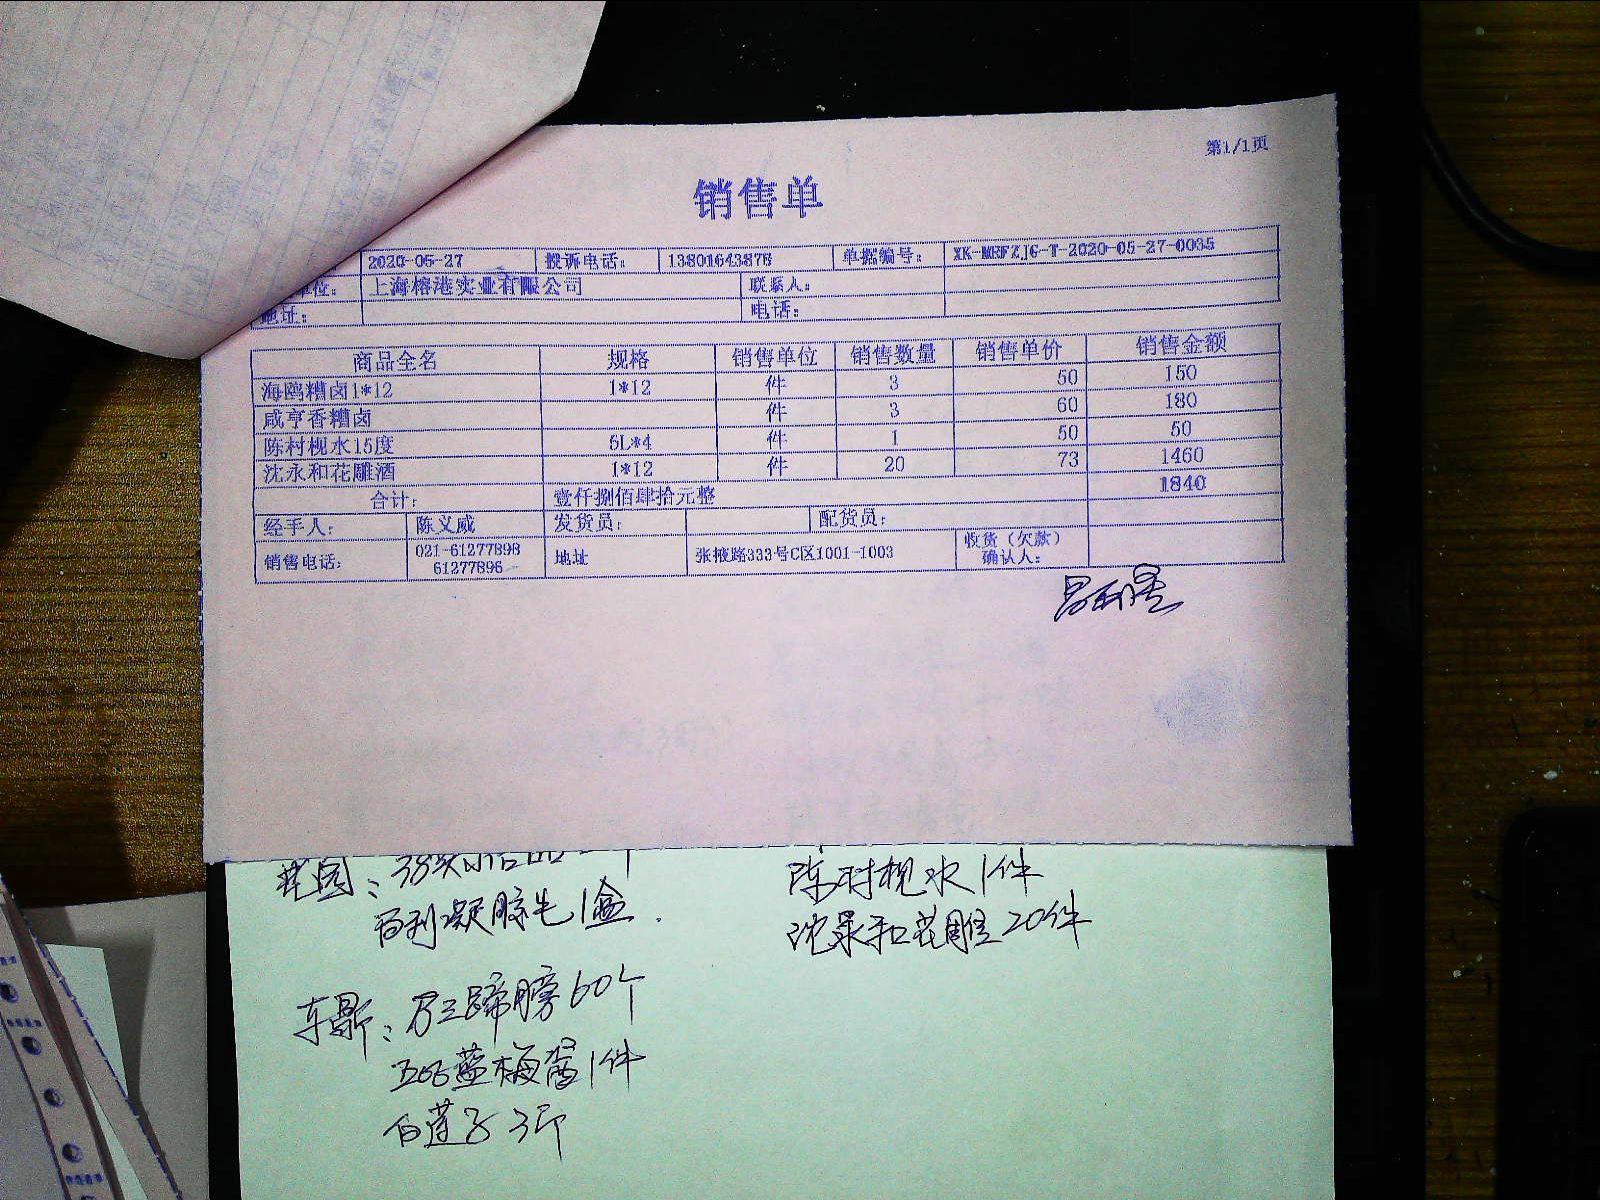 第1/1页
销售单
2020-05-27 投诉电话: 13801643878 单据编号: XK-MRFZJG-T-2020-05-27-0035
单位: 上海榕港实业有限公司 联系人:
地址: 电话:
商品全名 规格 销售单位 销售数量 销售单价 销售金额
海鸥糟卤1*12 1*12 件 3 50 150
咸亨香糟卤 件 3 60 180
陈村枧水15度 5L*4 件 1 50 50
沈永和花雕酒 1*12 件 20 73 1460
合计: 壹仟捌佰肆拾元整 1840
经手人: 陈义威 发货员: 配货员:
销售电话: 021-61277898 61277896 地址 张掖路333号C区1001-1003 收货(欠款)确认人:
陈村枧水1件
百利凝胶 1盒
沈永和花雕20件
万三蹄膀60个
蓝梅酱1件
白莲子3斤